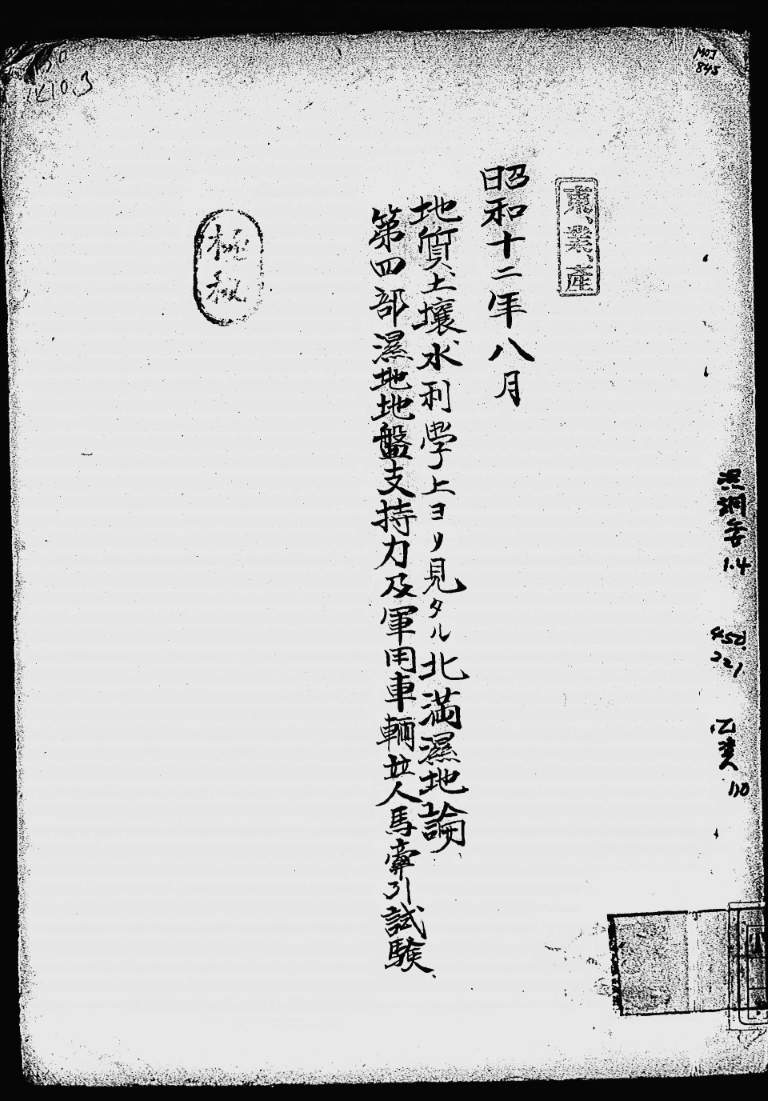 昭和十二年八月
地質、土壤、水利學上ヨリ見タル北満濕地論
第四部濕地地盤支持力及軍用車輛並人馬牽引試験
極秘
業、產
MOT
845
1.4
452
221